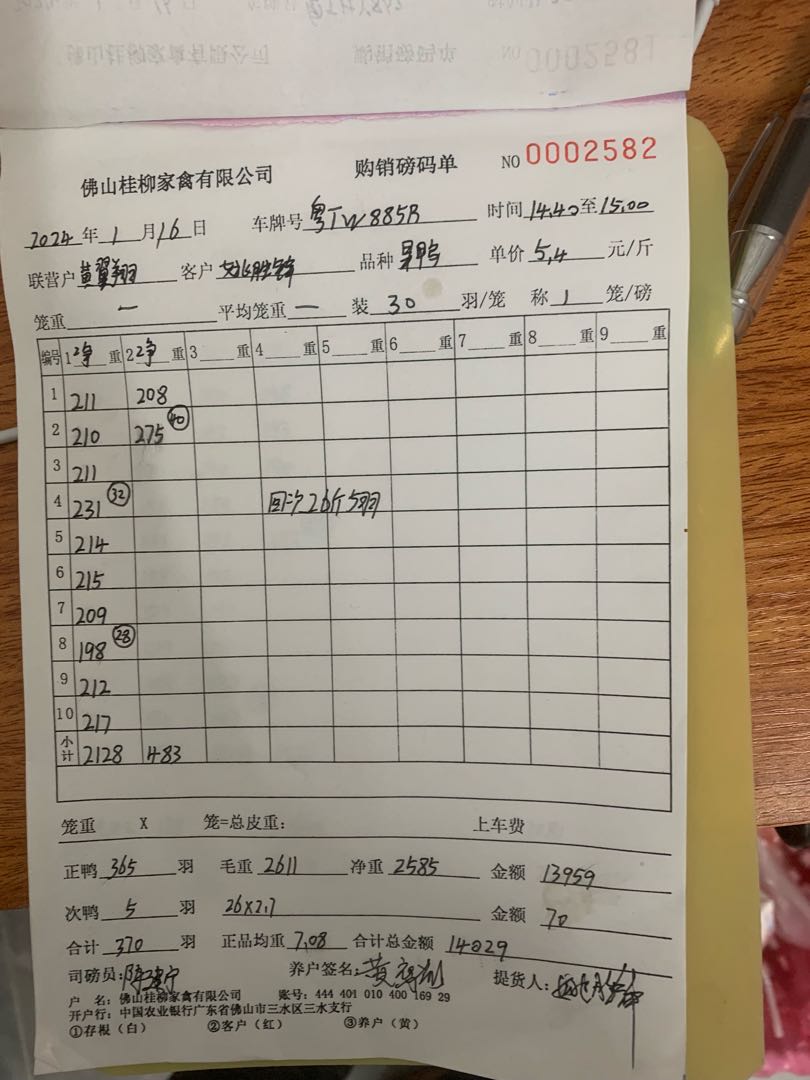 NO 0002581
佛山桂柳家禽有限公司 购销磅码单 NO 0002582
2024年1月16日 车牌号 粤TW885R 时间14.40至15.00
联营户 黄翼翔 客户 品种 单价5.4元/斤
笼重 一 平均笼重 一 装 30 羽/笼 称 1 笼/磅
编号 1净重 2净重 3重 4重 5重 6重 7重 8重 9重
1 211 208
2 210 275 ㊵
3 211
4 231 ㉜ 回次26斤5羽
5 214
6 215
7 209
8 198 ㉘
9 212
10 217
小计 2128 483
笼重 X 笼=总皮重: 上车费
正鸭 365 羽 毛重 2611 净重 2585 金额 13959
次鸭 5 羽 26×2.7 金额 70
合计 370 羽 正品均重 7.08 合计总金额 14029
司磅员: 养户签名: 提货人:
户 名: 佛山桂柳家禽有限公司 账号: 444 401 010 400 169 29
开户行: 中国农业银行广东省佛山市三水区三水支行
①存根(白) ②客户(红) ③养户(黄)